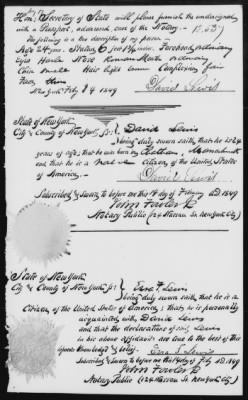 Hon. Secretary of State will please furnish the undersigned
with a Passport, addressed, care of the Notary.
The following is a true description of my person.
Age 24 years. Stature 5 feet Forehead ordinary
Eyes Nose Roman Mouth ordinary
Chin small Hair light Complexion fair
Face thin
New York Feby 14 1849 David Lewis
State of New York
City & County of New York, ss: David Lewis
being duly sworn saith, that he is 24
years of age, that he was born in
and that he is a native citizen of the United States
of America.
David Lewis
Subscribed & Sworn to before me this 14 day of February A.D. 1849
John Fowler Jr
Notary Public (24 Nassau St. New York City)
State of New York
City & County of New York, ss: Lewis
being duly sworn saith, that he is a
Citizen of the United States of America; that he is personally
acquainted with David Lewis
and that the declarations of said Lewis
in his above affidavit are true to the best of this
deponents knowledge & belief.
Lewis
Subscribed & Sworn to before me this 14 day of Feby A.D. 1849
John Fowler Jr
Notary Public (24 Nassau St. New York City)